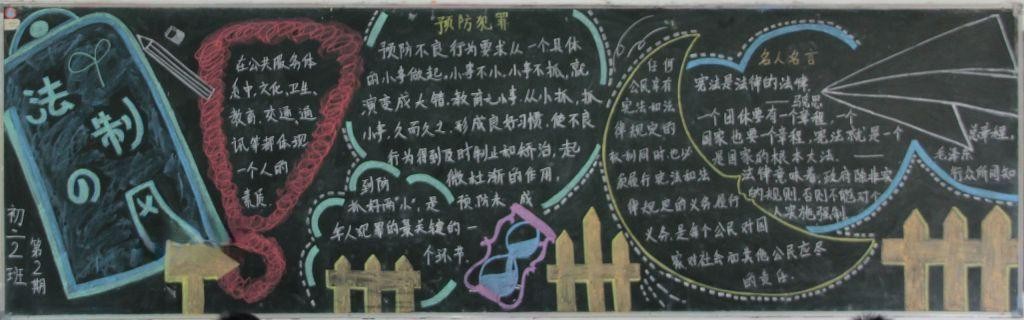 法制の风
初二2班
第2期
在公共服务体
系中,文化、卫生、
教育、交通、通
试等都体现
一个人的
素质.
预防犯罪
预防不良行为要求从一个具体
的小事做起,小事不小,小事不抓,就
演变成大错,教育之小事,从小抓,抓
小事,久而久之,形成良好习惯,使不良
行为得到及时制止和矫治,起
微杜渐的作用,
到防
抓好两"小",是预防未成
年人犯罪的最关键的一
个环节.
任何
公民享有
宪法和法
律规定的
权利同时,也必
须履行宪法和法
律规定的义务,履行
义务,是每个公民对国
家对社会和其他公民应尽
的责任.
名人名言
宪法是法律的法律,
一个团体要有一个章程,一个
国家也要一个章程,宪法就是一个
是国家的根本大法, ——
毛泽东
法律意味着,政府除非实
的规则,否则不能对个
人实施强制
总章程,
行众所周知